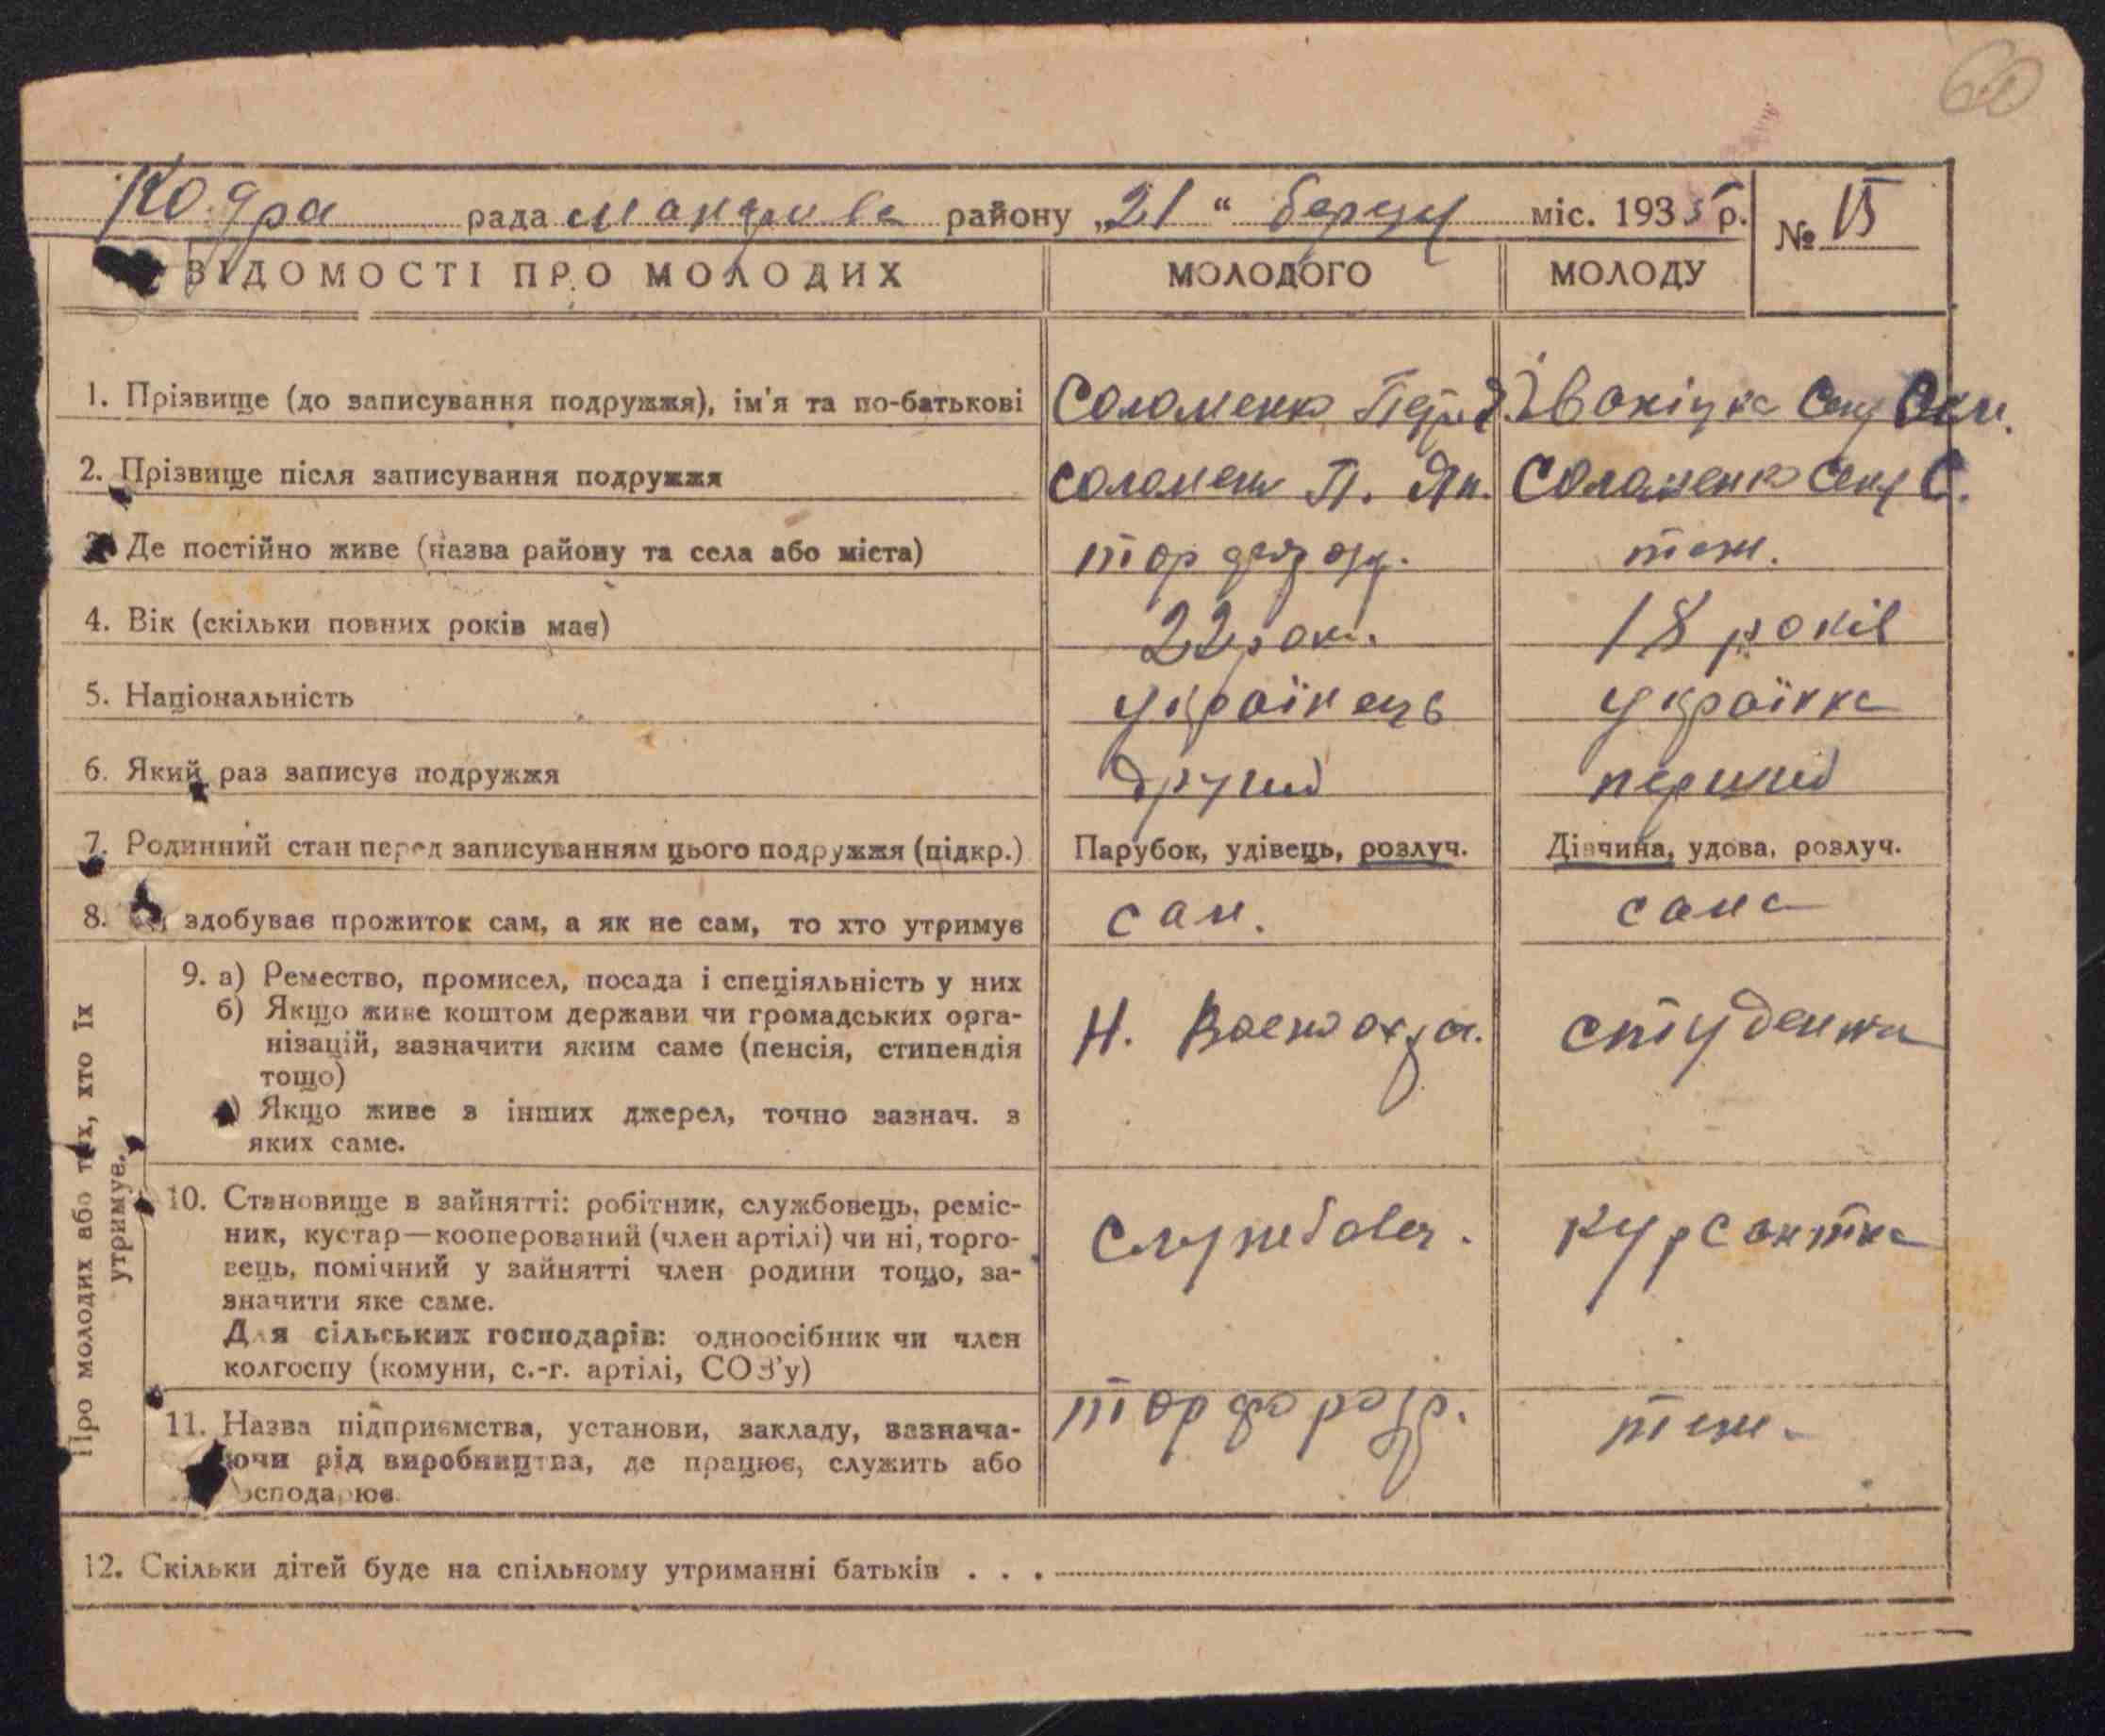 60
Кодра рада макарівс району „21“ березня міс. 1935 р. № 15
ВІДОМОСТІ ПРО МОЛОДИХ МОЛОДОГО МОЛОДУ
1. Прізвище (до записування подружжя), ім'я та по-батькові Соломенко Петро
2. Прізвище після записування подружжя Соломенко П. Соломенко С.
Де постійно живе (назва району та села або міста) теж.
4. Вік (скільки повних років має) 22 рок. 18 років
5. Національність українець українка
6. Який раз записує подружжя другий перший
7. Родинний стан перед записуванням цього подружжя (підкр.) Парубок, удівець, розлуч. Дівчина, удова, розлуч.
8. здобуває прожиток сам, а як не сам, то хто утримує сам. сама
Про молодих або тих, хто їх
утримує.
9. а) Ремество, промисел, посада і спеціяльність у них
б) Якщо живе коштом держави чи громадських орга-
нізацій, зазначити яким саме (пенсія, стипендія
тощо)
Н. студентка
) Якщо живе з інших джерел, точно зазнач. з
яких саме.
10. Становище в зайнятті: робітник, службовець, реміс-
ник, кустар—кооперований (член артілі) чи ні, торго-
вець, помічний у зайнятті член родини тощо, за-
значити яке саме.
службовец. курсантка
Для сільських господарів: одноосібник чи член
колгоспу (комуни, с.-г. артілі, СОЗ'у)
11. Назва підприємства, установи, закладу, зазнача-
ючи рід виробництва, де працює, служить або
господарює.
торфорозр. теж.
12. Скільки дітей буде на спільному утриманні батьків . . .